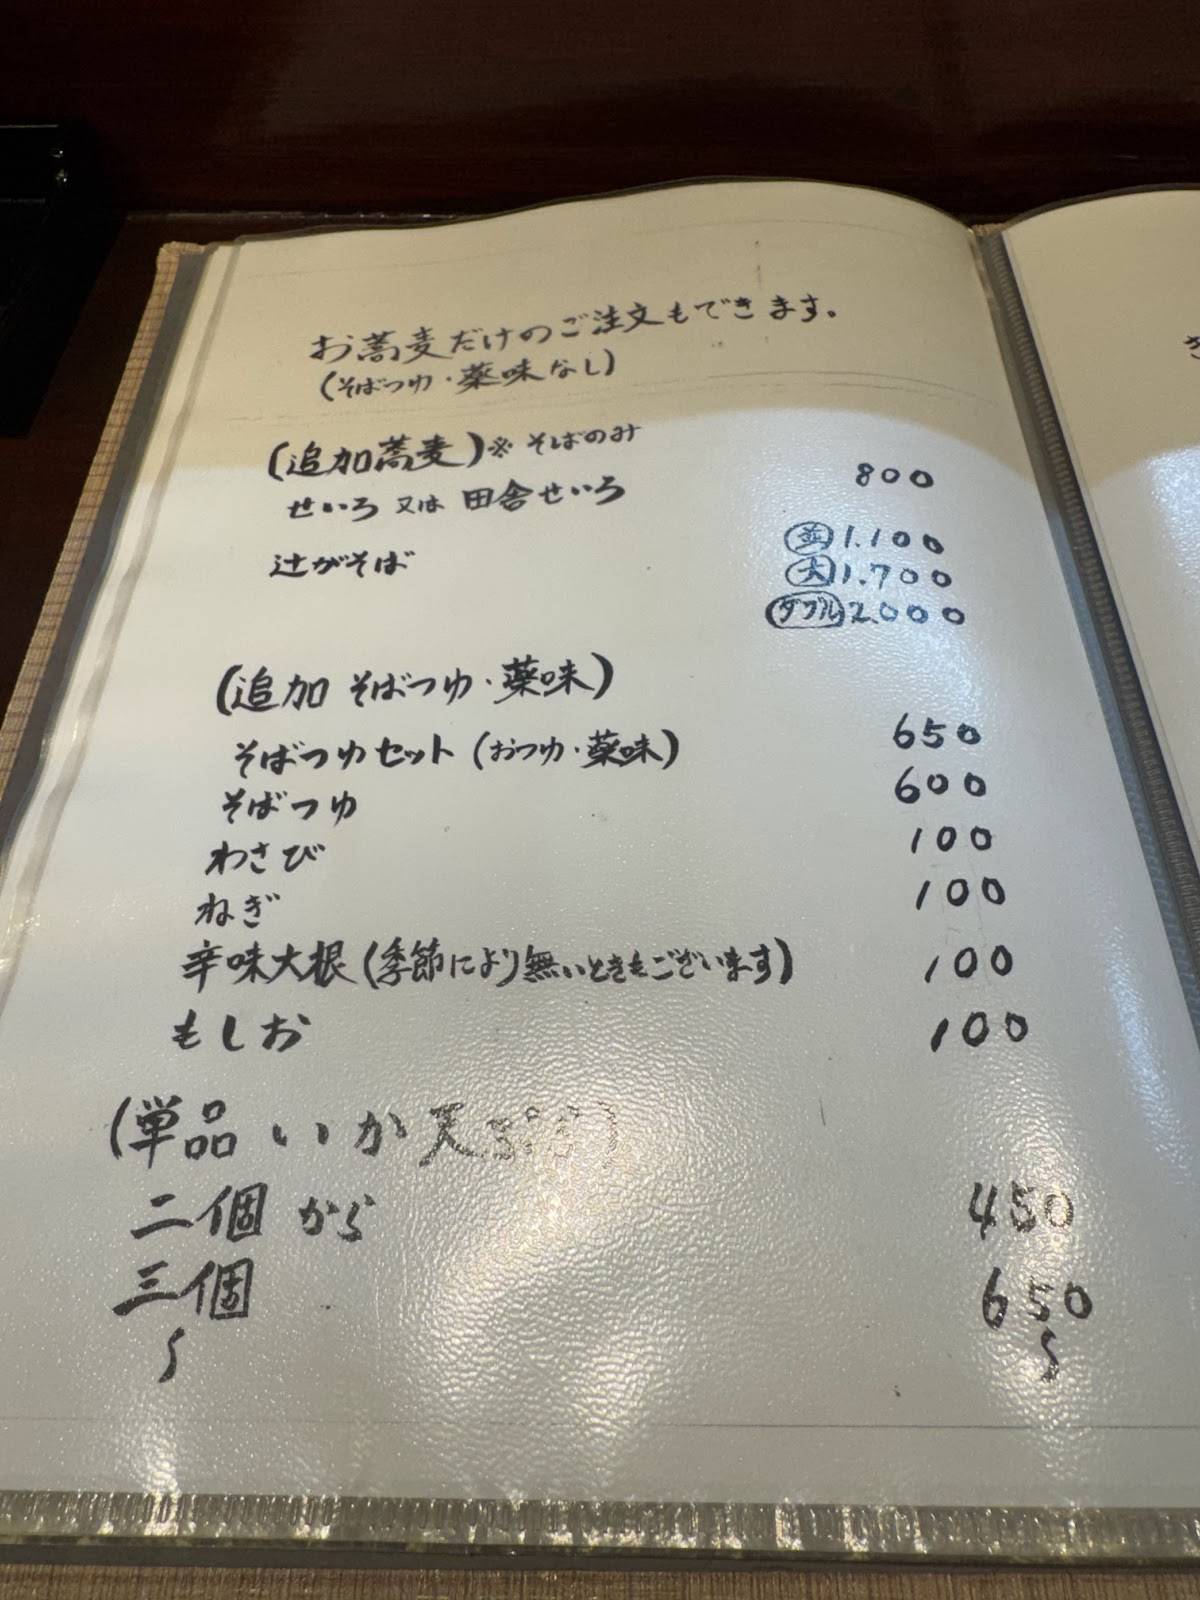 お蕎麦だけのご注文もできます。
(そばつゆ・薬味なし)
(追加蕎麦)※そばのみ
せいろ又は田舎せいろ 800
辻がそば 並 1.100
大 1.700
ダブル 2.000
(追加 そばつゆ・薬味)
そばつゆセット(おつゆ・薬味) 650
そばつゆ 600
わさび 100
ねぎ 100
辛味大根(季節により無いときもございます) 100
もしお 100
(単品 いか天ぷら)
二個から 450
三個 650
〜 〜